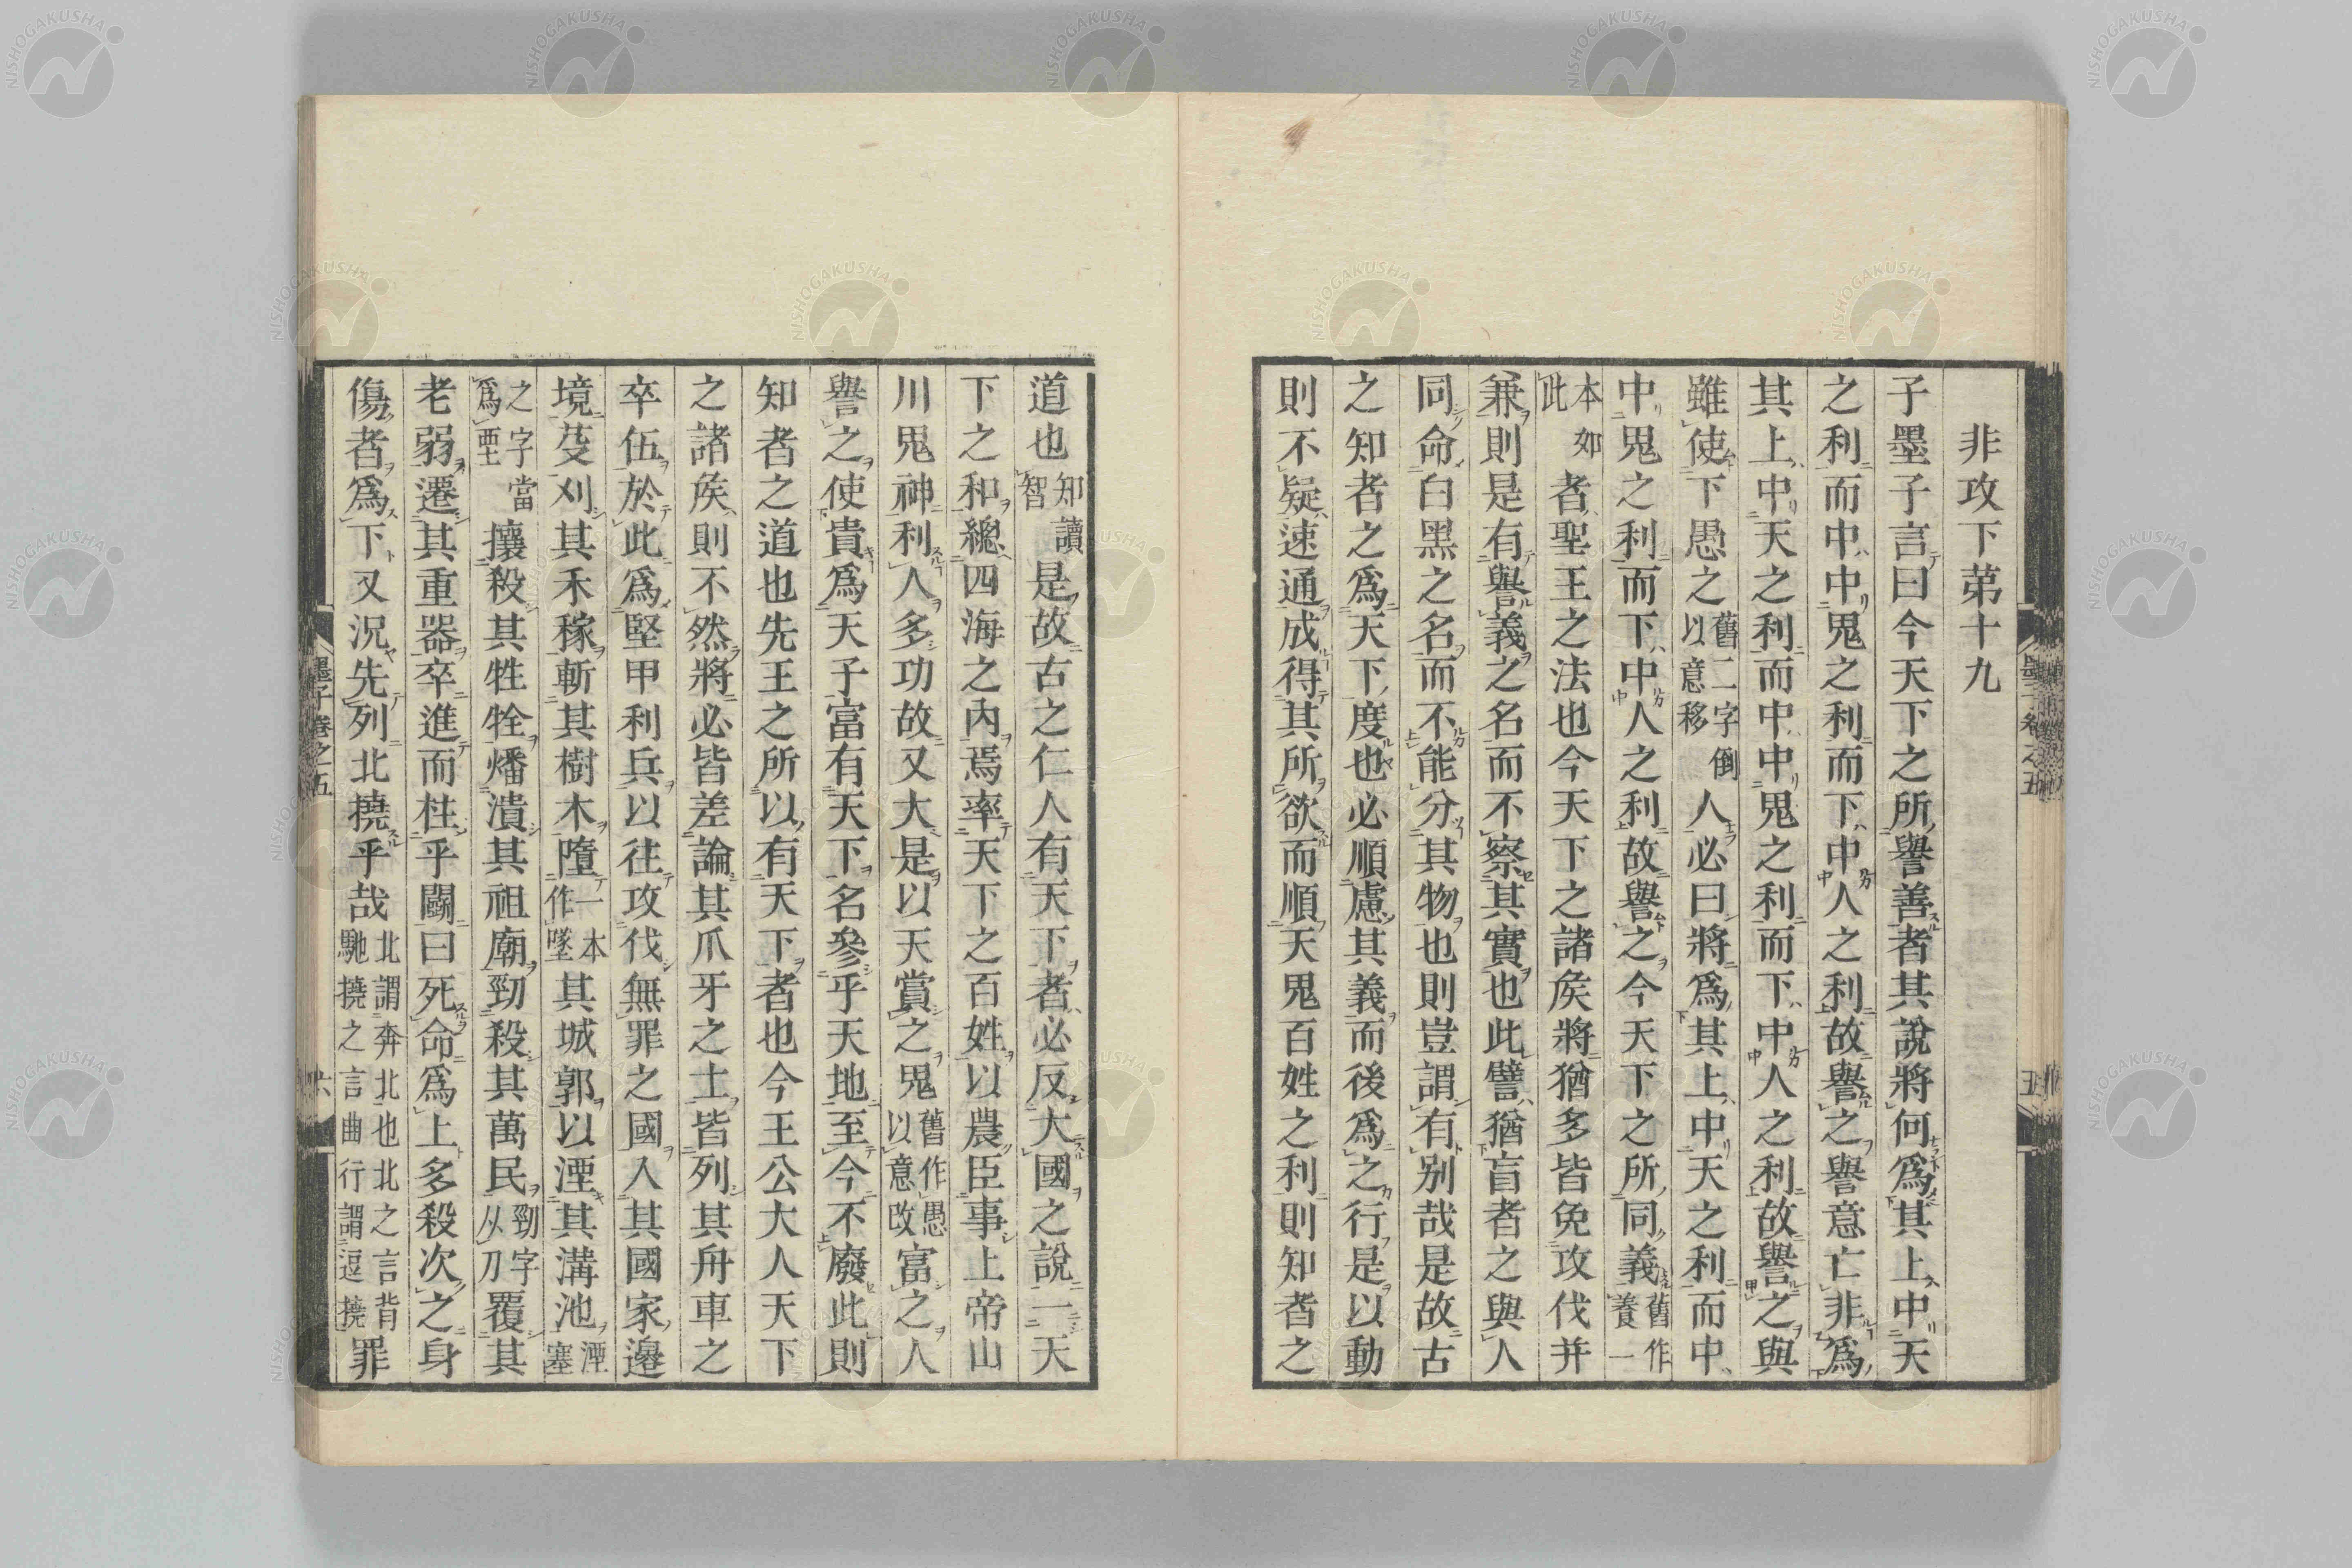 非攻下第十九
子墨子言曰今天下之所譽善者其說將何爲其上中天
之利而中中鬼之利而下中人之利故譽之譽意亡非爲
其上中天之利而中中鬼之利而下中人之利故譽之與
雖使下愚之舊二字倒以意移人必曰將爲其上中天之利而中
中鬼之利而下中人之利故譽之今天下之所同義舊作養一
本如此者聖王之法也今天下之諸侯將猶多皆免攻伐并
兼則是有譽義之名而不察其實也此譬猶盲者之與人
同命白黑之名而不能分其物也則豈謂有别哉是故古
之知者之爲天下度也必順慮其義而後爲之行是以動
則不疑速通成得其所欲而順天鬼百姓之利則知者之
道也知讀智是故古之仁人有天下者必反大國之說一天
下之和總四海之內焉率天下之百姓以農臣事上帝山
川鬼神利人多功故又大是以天賞之鬼舊作愚以意改富之人
譽之使貴爲天子富有天下名參乎天地至今不廢此則
知者之道也先王之所以有天下者也今王公大人天下
之諸侯則不然將必皆差論其爪牙之士皆列其舟車之
卒伍於此爲堅甲利兵以往攻伐無罪之國入其國家邊
境芟刈其禾稼斬其樹木墮一本作墜其城郭以湮其溝池湮塞
之字當爲垔攘殺其牲牷燔潰其祖廟勁殺其萬民勁字从刀覆其
老弱遷其重器卒進而柱乎鬭曰死命爲上多殺次之身
傷者爲下又況先列北撓乎哉北謂奔北也北之言背馳撓之言曲行謂逗撓罪
墨子卷之五
六
NISHOGAKUSHA